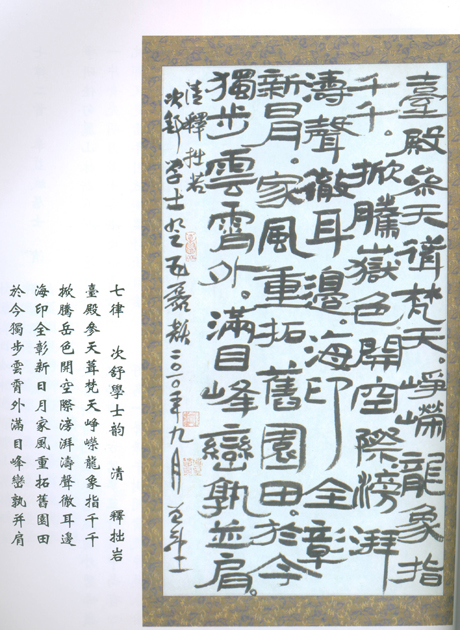 臺殿參天聳梵天。崢嶸龍象指
千千。掀騰嶽色開空際。滂湃
濤聲徹耳邊。海印全彰
新日月。家風重拓舊園田。於今
獨步雲霄外。滿目峰巒孰並肩。
清釋拙岩
次舒學士韻 二〇一〇年九月
七律 次舒學士韵 清 釋拙岩
臺殿參天聳梵天崢嶸龍象指千千
掀騰岳色開空際滂湃濤聲徹耳邊
海印全彰新日月家風重拓舊園田
於今獨步雲霄外滿目峰巒孰并肩